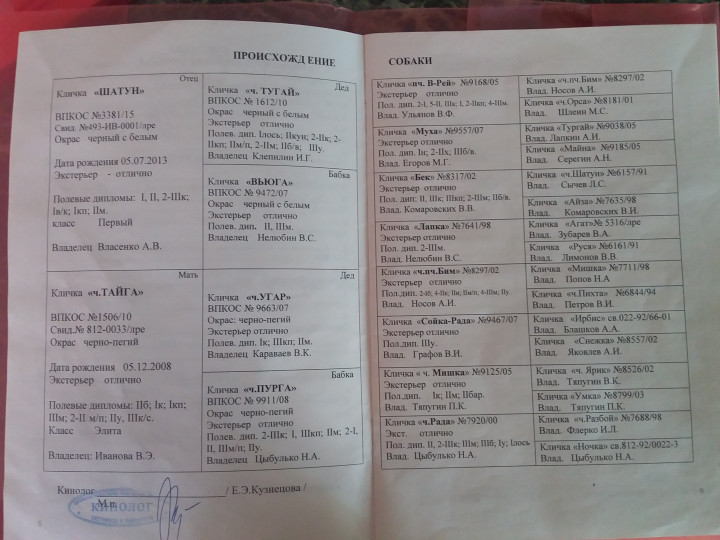 ПРОИСХОЖДЕНИЕ
Отец
Кличка «ШАТУН»
ВПКОС №3381/15
Свид. №493-ИВ-0001/лре
Окрас черный с белым
Дата рождения 05.07.2013
Экстерьер - отлично
Полевые дипломы: I, II, 2-IIIк;
Iв/к; Iкп; IIм.
класс Первый
Владелец Власенко А.В.
Дед
Кличка «ч. ТУГАЙ»
ВПКОС № 1612/10
Окрас черный с белым
Экстерьер отлично
Полев. дип. Iлось; IIкун; 2-IIк; 2-
IIкп; IIм/п; 2-IIм; IIб/в; IIу.
Владелец Клепилин И.Г.
Бабка
Кличка «ВЬЮГА»
ВПКОС № 9472/07
Окрас черный с белым
Экстерьер отлично
Полев. дип. II, IIIм.
Владелец Нелюбин В.С.
Мать
Кличка «ч.ТАЙГА»
ВПКОС №1506/10
Свид.№ 812-0033/лре
Окрас черно-пегий
Дата рождения 05.12.2008
Экстерьер отлично
Полевые дипломы: IIб; Iк; Iкп;
IIм; 2-II м/п; IIу, IIIк/с.
Класс Элита
Владелец: Иванова В.Э.
Дед
Кличка «ч.УГАР»
ВПКОС № 9663/07
Окрас: черно-пегий
Экстерьер отлично
Полев. дип. Iк; IIIкп; IIм.
Владелец Караваев В.К.
Бабка
Кличка «ч.ПУРГА»
ВПКОС № 9911/08
Окрас черно-пегий
Экстерьер отлично
Полев. дип. 2-IIIк; I, IIIкп; IIм; 2-I,
II, IIIм/п; IIу.
Владелец Цыбулько Н.А.
Кинолог / Е.Э.Кузнецова /
М.п.
КИНОЛОГ
СОБАКИ
Кличка «пч. В-Рей» №9168/05
Экстерьер отлично
Пол. дип. 2-I, 5-II, IIIк; I, 2-IIкп; 4-IIм.
Влад. Ульянов В.Ф.
«Муха» №9557/07
Экстерьер отлично
Пол. дип. Iк; 2-IIк; IIIб/в.
Влад. Егоров М.Г.
Кличка «Бек» №8317/02
Экстерьер отлично
Пол. дип: II, IIIк; IIкп; 2-IIIм; IIб/в.
Влад. Комаровских В.В.
Кличка «Лапка» №7641/98
Экстерьер отлично
Пол. дип. 2-IIIм.
Влад. Нелюбин В.С.
Кличка «ч.пч.Бим» №8297/02
Экстерьер отлично
Влад. Носов А.И.
Кличка «Сойка-Рада» №9467/07
Экстерьер отлично
Пол.дип. IIIу.
Влад. Графов В.И.
Кличка « ч. Мишка» №9125/05
Экстерьер отлично
Пол.дип. Iк; IIм; IIбар.
Влад. Тяпугин П.К.
Кличка «ч.Рада» №7920/00
Экст. отлично
Пол. дип. II, 2-IIIк; IIм; IIIб; Iу; Iлось
Влад. Цыбулько Н.А.
Кличка «ч.пч.Бим» №8297/02
Влад. Носов А.И.
Кличка «ч.Орса» №8181/01
Влад. Шлеин М.С.
Кличка «Тургай» №9038/05
Влад. Лапкин А.И.
Кличка «Майна» №9185/05
Влад. Серегин А.Н.
Кличка «ч.Шатун» №6157/91
Влад. Сычев Л.С.
Кличка «Айза» №7635/98
Влад. Комаровских В.И.
Кличка «Агат»№ 5316/лре
Влад. Зубарев В.А.
Кличка «Руся» №6161/91
Влад. Лимонов В.В.
Кличка «Мишка» №7711/98
Влад. Попов Н.А
Кличка «ч.Пихта» №6844/94
Влад. Петров В.И.
Кличка «Ирбис» св.022-92/66-01
Влад. Блашков А.А.
Кличка «Снежка» №8557/02
Влад. Яковлев А.И.
Кличка «ч. Ярик» №8526/02
Влад. Тяпугин В.К.
Кличка «Умка» №8799/03
Влад. Тяпугин П.К.
Кличка «ч.Разбой» №7688/98
Влад. Флерко И.Л.
Кличка «Ночка» св.812-92/0022-3
Влад. Цыбулько Н.А.